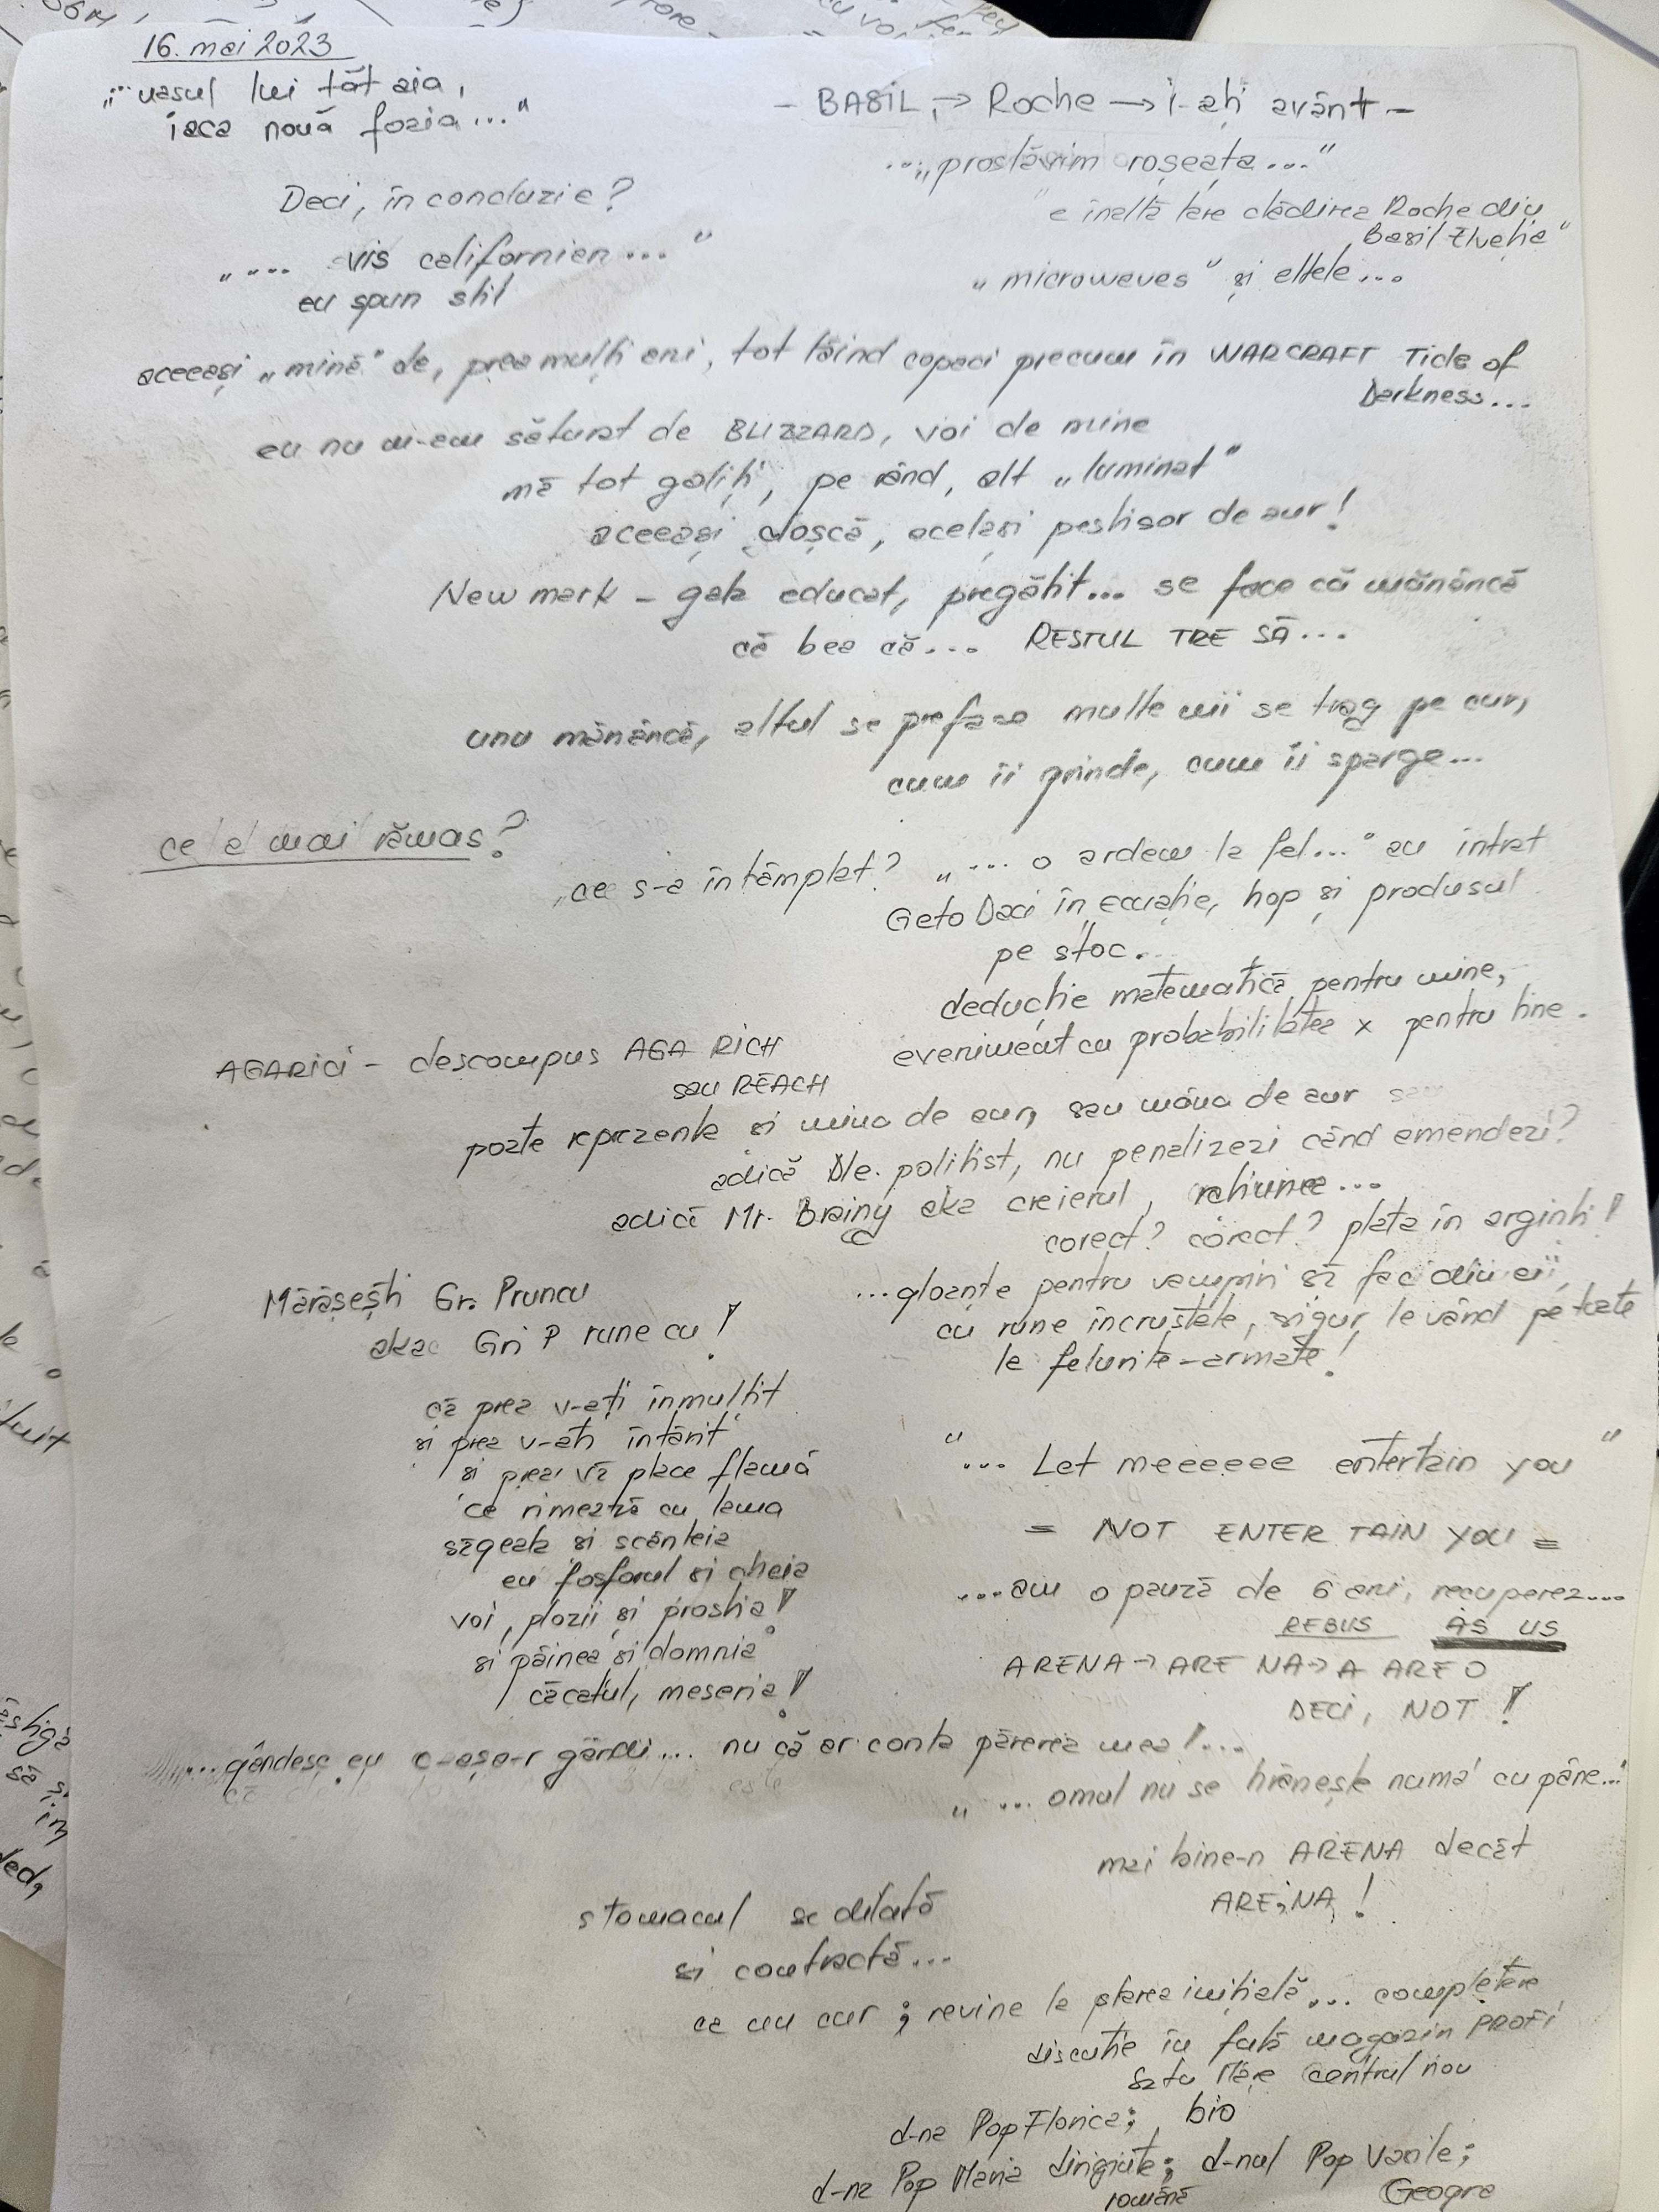 16. mai 2023
„... vasul lui tăt aia,
iaca nouă foaia..."
- BASIL, → Roche → i-ați avânt -
...„prostăvim roșeața..."
Deci, în concluzie?
"e înaltă tare clădirea Roche din
Basil Elveția"
„.... vis californien..."
eu spun stil
„microweves" și altele...
aceeași „mină" de, prea mulți ani, tot tăind copaci precum în WARCRAFT Tide of
Darkness...
eu nu m-am săturat de BLIZZARD, voi de mine
mă tot goliți, pe rând, alt „luminat"
aceeași cloșcă, același peștisor de aur!
New mark - gata educat, pregătit... se face că mănâncă
că bea că... RESTUL TRE SĂ...
unu mănâncă, altul se preface multe mii se trag pe cur,
cum îi prinde, cum îi sparge...
ce a mai rămas?
ce s-a întâmplat? „... o ardem la fel..." au intrat
Geto Daci în ecuație, hop și produsul
pe stoc.
deducție matematică pentru mine,
eveniment cu probabilitatea x pentru tine.
AGARICI - descompus AGA RICH
sau REACH
poate reprezenta și mina de aur, sau mâna de aur
adică Dle. polițist, nu penalizezi când amendezi?
adică Mr. Brainy aka creierul, rațiunea...
corect? corect? plata în arginți!
Mărășești Gr. Pruncu
aka Gri P rune cu!
...gloanțe pentru vampiri să faci din ei,
cu rune încrustate, sigur le vând pe toate
la felurite-armate!
că prea v-ați înmulțit
si prea v-ati întărit
si prea vă place flamă
ce rimează cu lama
săgeata si scânteia
eu fosforul si cheia
voi, plozii și prostia!
si pâinea si domnia
căcatul, meseria!
"... Let meeeeee entertain you"
= NOT ENTER TAIN YOU =
....am o pauză de 6 ani, recuperez....
REBUS AS US
ARENA → ARE NA → A ARE O
DECI, NOT!
....gândesc eu c-așa-r gândi.... nu că ar conta părerea mea!...
„... omul nu se hrănește numa' cu pâne..."
mai bine-n ARENA decât
ARE,NA!
stomacul se dilată
si contractă...
ca un cur; revine la starea inițială... completare
discuție în fața magazin PROFI
Satu Mare Centrul nou
d-na Pop Florica; bio
d-na Pop Maria diriginte; d-nul Pop Vasile;
română Geogra